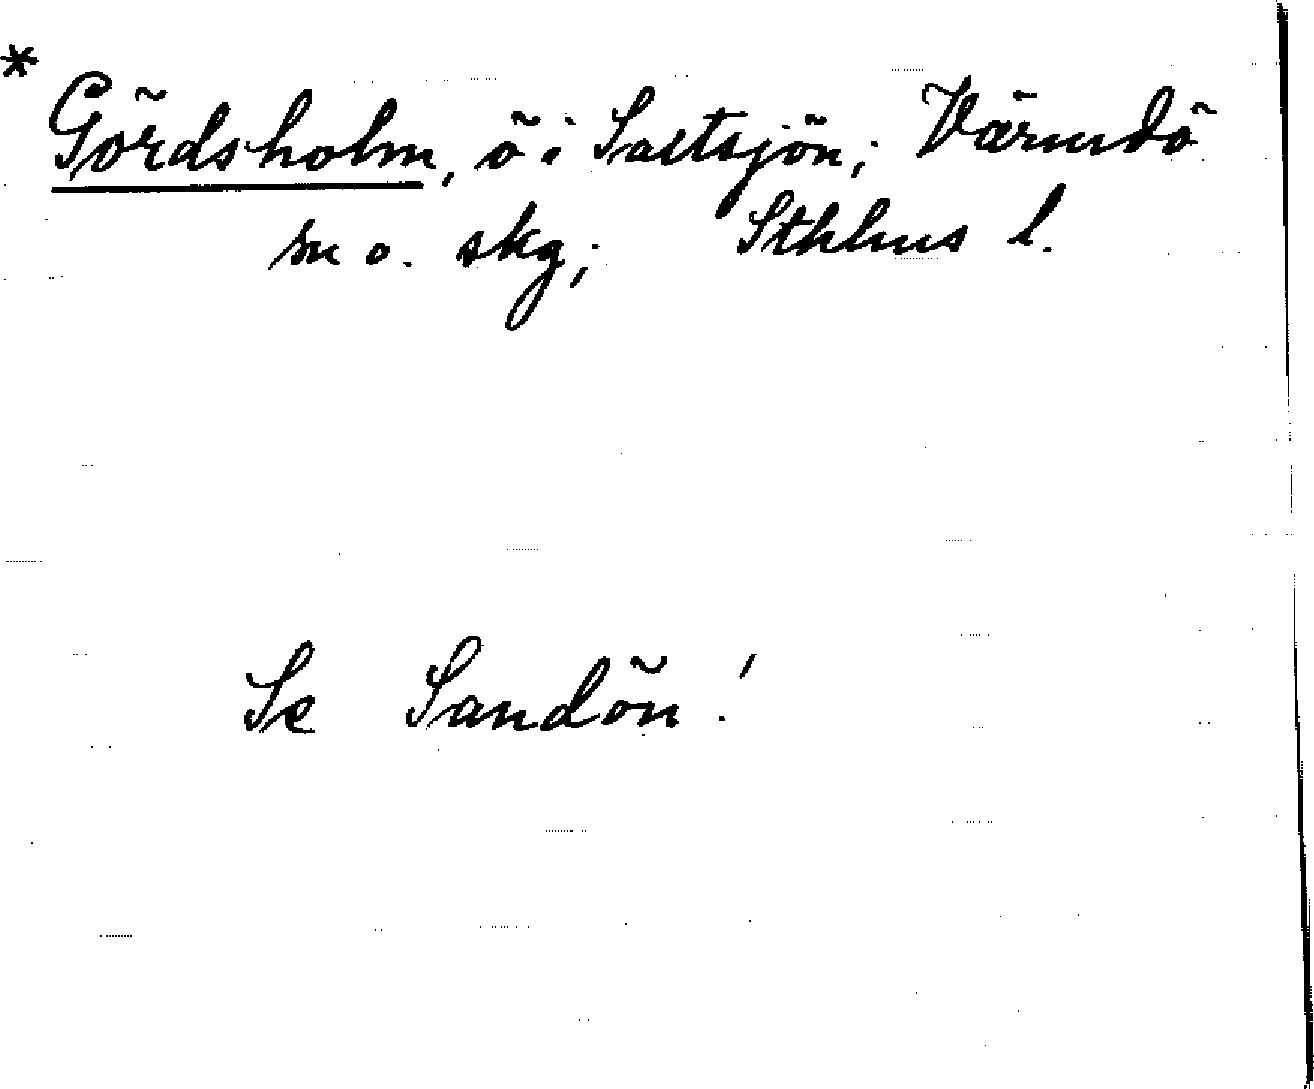 * Gördsholm, ö i Saltsjön; Värmdö
sn o. skg; Sthlms l.
Se Sandön!